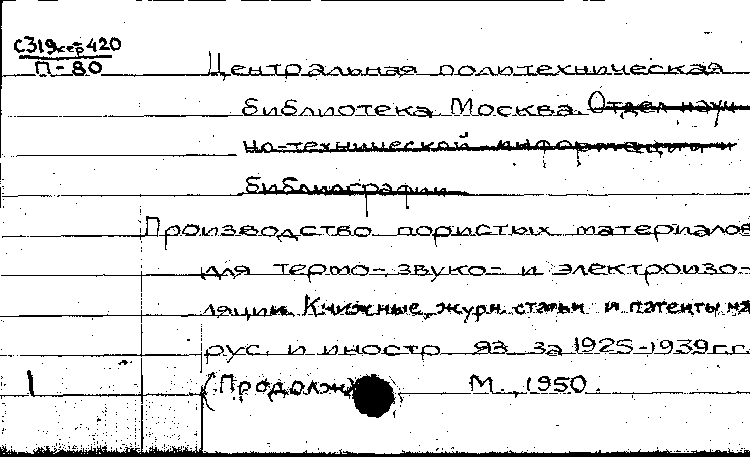 С319кер420
П-80
Центральная политехническая
библиотека Москва. Отдел науч
но-технической информации и
библиографии
Производство пористых материалов
для термо-, звуко- и электроизо-
ляции. Книжные, журн. статьи и патенты на
рус. и иностр яз. за 1925-1939г.г.
1 (Продолж М., 1950.